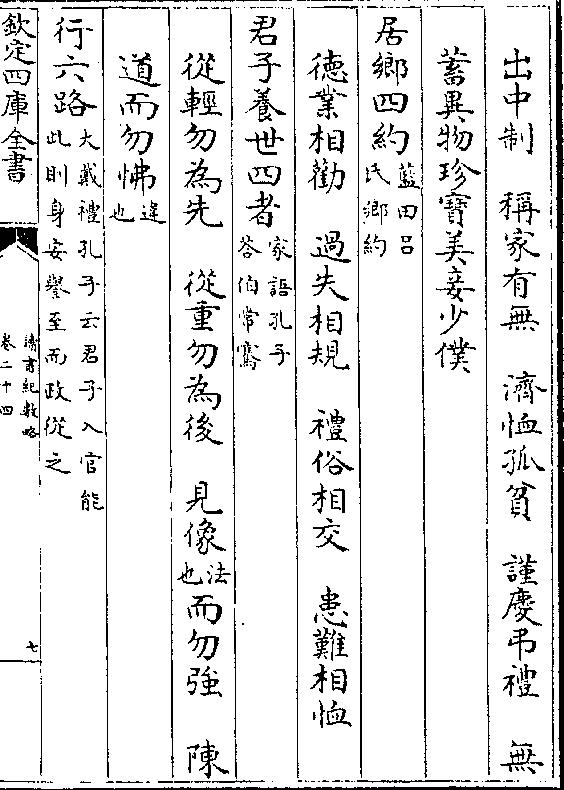 出中制　稱家有無　濟恤孤貧　謹慶弔禮　無
蓄異物珍寶美妾少僕
居鄉四約藍田呂氏鄉約
德業相勸　過失相規　禮俗相交　患難相恤
君子養世四者家語孔子答伯常騫
從輕勿為先　從重勿為後　見像法也而勿強　陳
道而勿怫違也
行六路大戴禮孔子云君子入官能此則身安譽至而政從之
欽定四庫全書
讀書紀數略
卷二十四
七